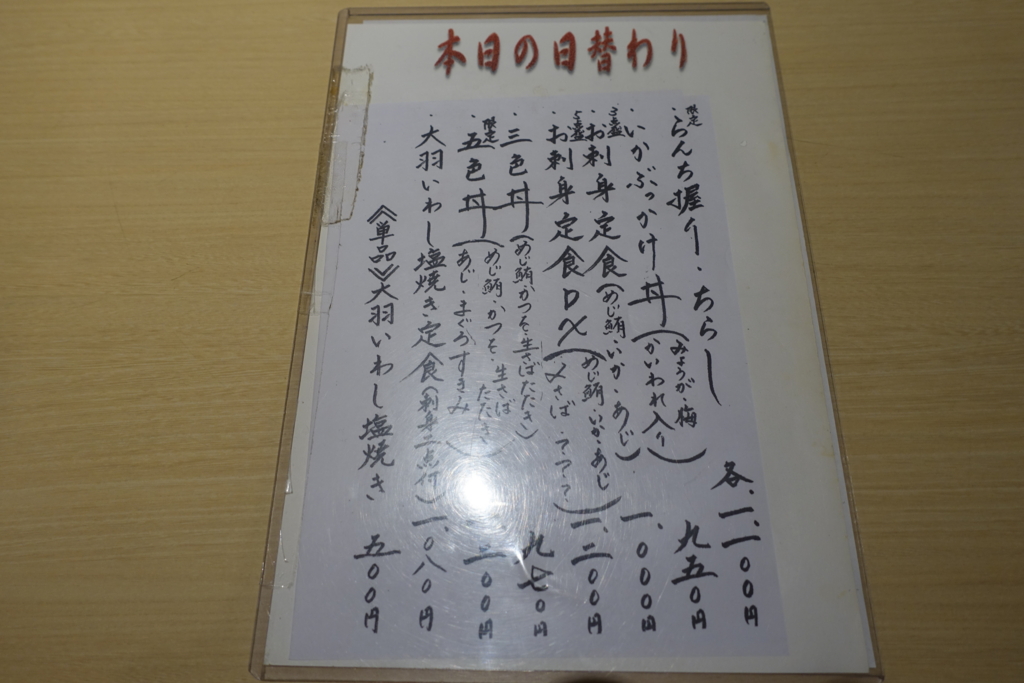 本日の日替わり
限定
・らんち握り・ちらし 各、一、一〇〇円
・いかぶっかけ丼(みょうが・梅 かいわれ入り) 九五〇円
・お刺身定食(めじ鮪・いか・あじ) 一、〇〇〇円
・お刺身定食DX(めじ鮪・いか・あじ 〆さば・マママ) 一、二〇〇円
・三色丼(めじ鮪・かつを・生さばたたき) 九七〇円
限定
・五色丼(めじ鮪・かつを・生さばたたき あじ・まぐろすきみ) 三〇〇円
・大羽いわし塩焼き定食(刺身二点付) 一、〇八〇円
《単品》大羽いわし塩焼き 五〇〇円